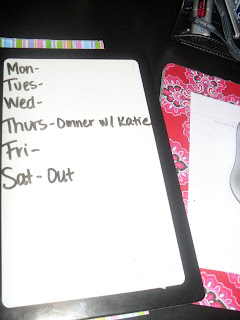 Mon-
Tues-
Wed-
Thurs-Dinner w/ Katie
Fri-
Sat-Out